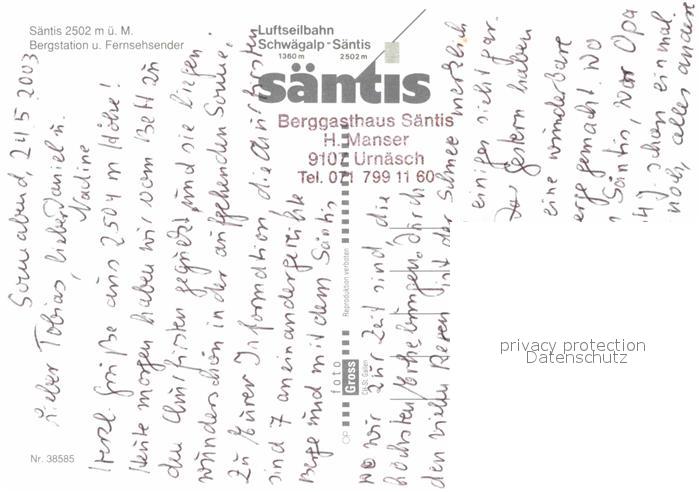 Säntis 2502 m ü. M.
Bergstation u. Fernsehsender
Luftseilbahn
Schwägalp-Säntis
1360 m 2502 m
säntis
Berggasthaus Säntis
H. Manser
9107 Urnäsch
Tel. 071 799 11 60
Sonnabend, 24.5.2003
Lieber Tobias, lieber Daniel u.
Nadine
Herzl. Grüße aus 2504 m Höhe!
Heute morgen haben wir vom Bett zu
den Churfirsten geguckt und sie liegen
wunderschön in der aufgehenden Sonne.
Zu Eurer Information die Churfirsten
sind 7 aneinandergereihte
Berge und mit dem Säntis
wo wir zur Zeit sind, die
höchsten Erhebungen. Durch
den vielen Regen ist der Schnee merklich
einiges
Das gestern haben
eine wunderbare
gemacht. Wo
Säntis, war Opa
schon einmal.
alles andere
Reproduktion verboten
foto
Gross
St. Gallen
Nr. 38585
privacy protection
Datenschutz